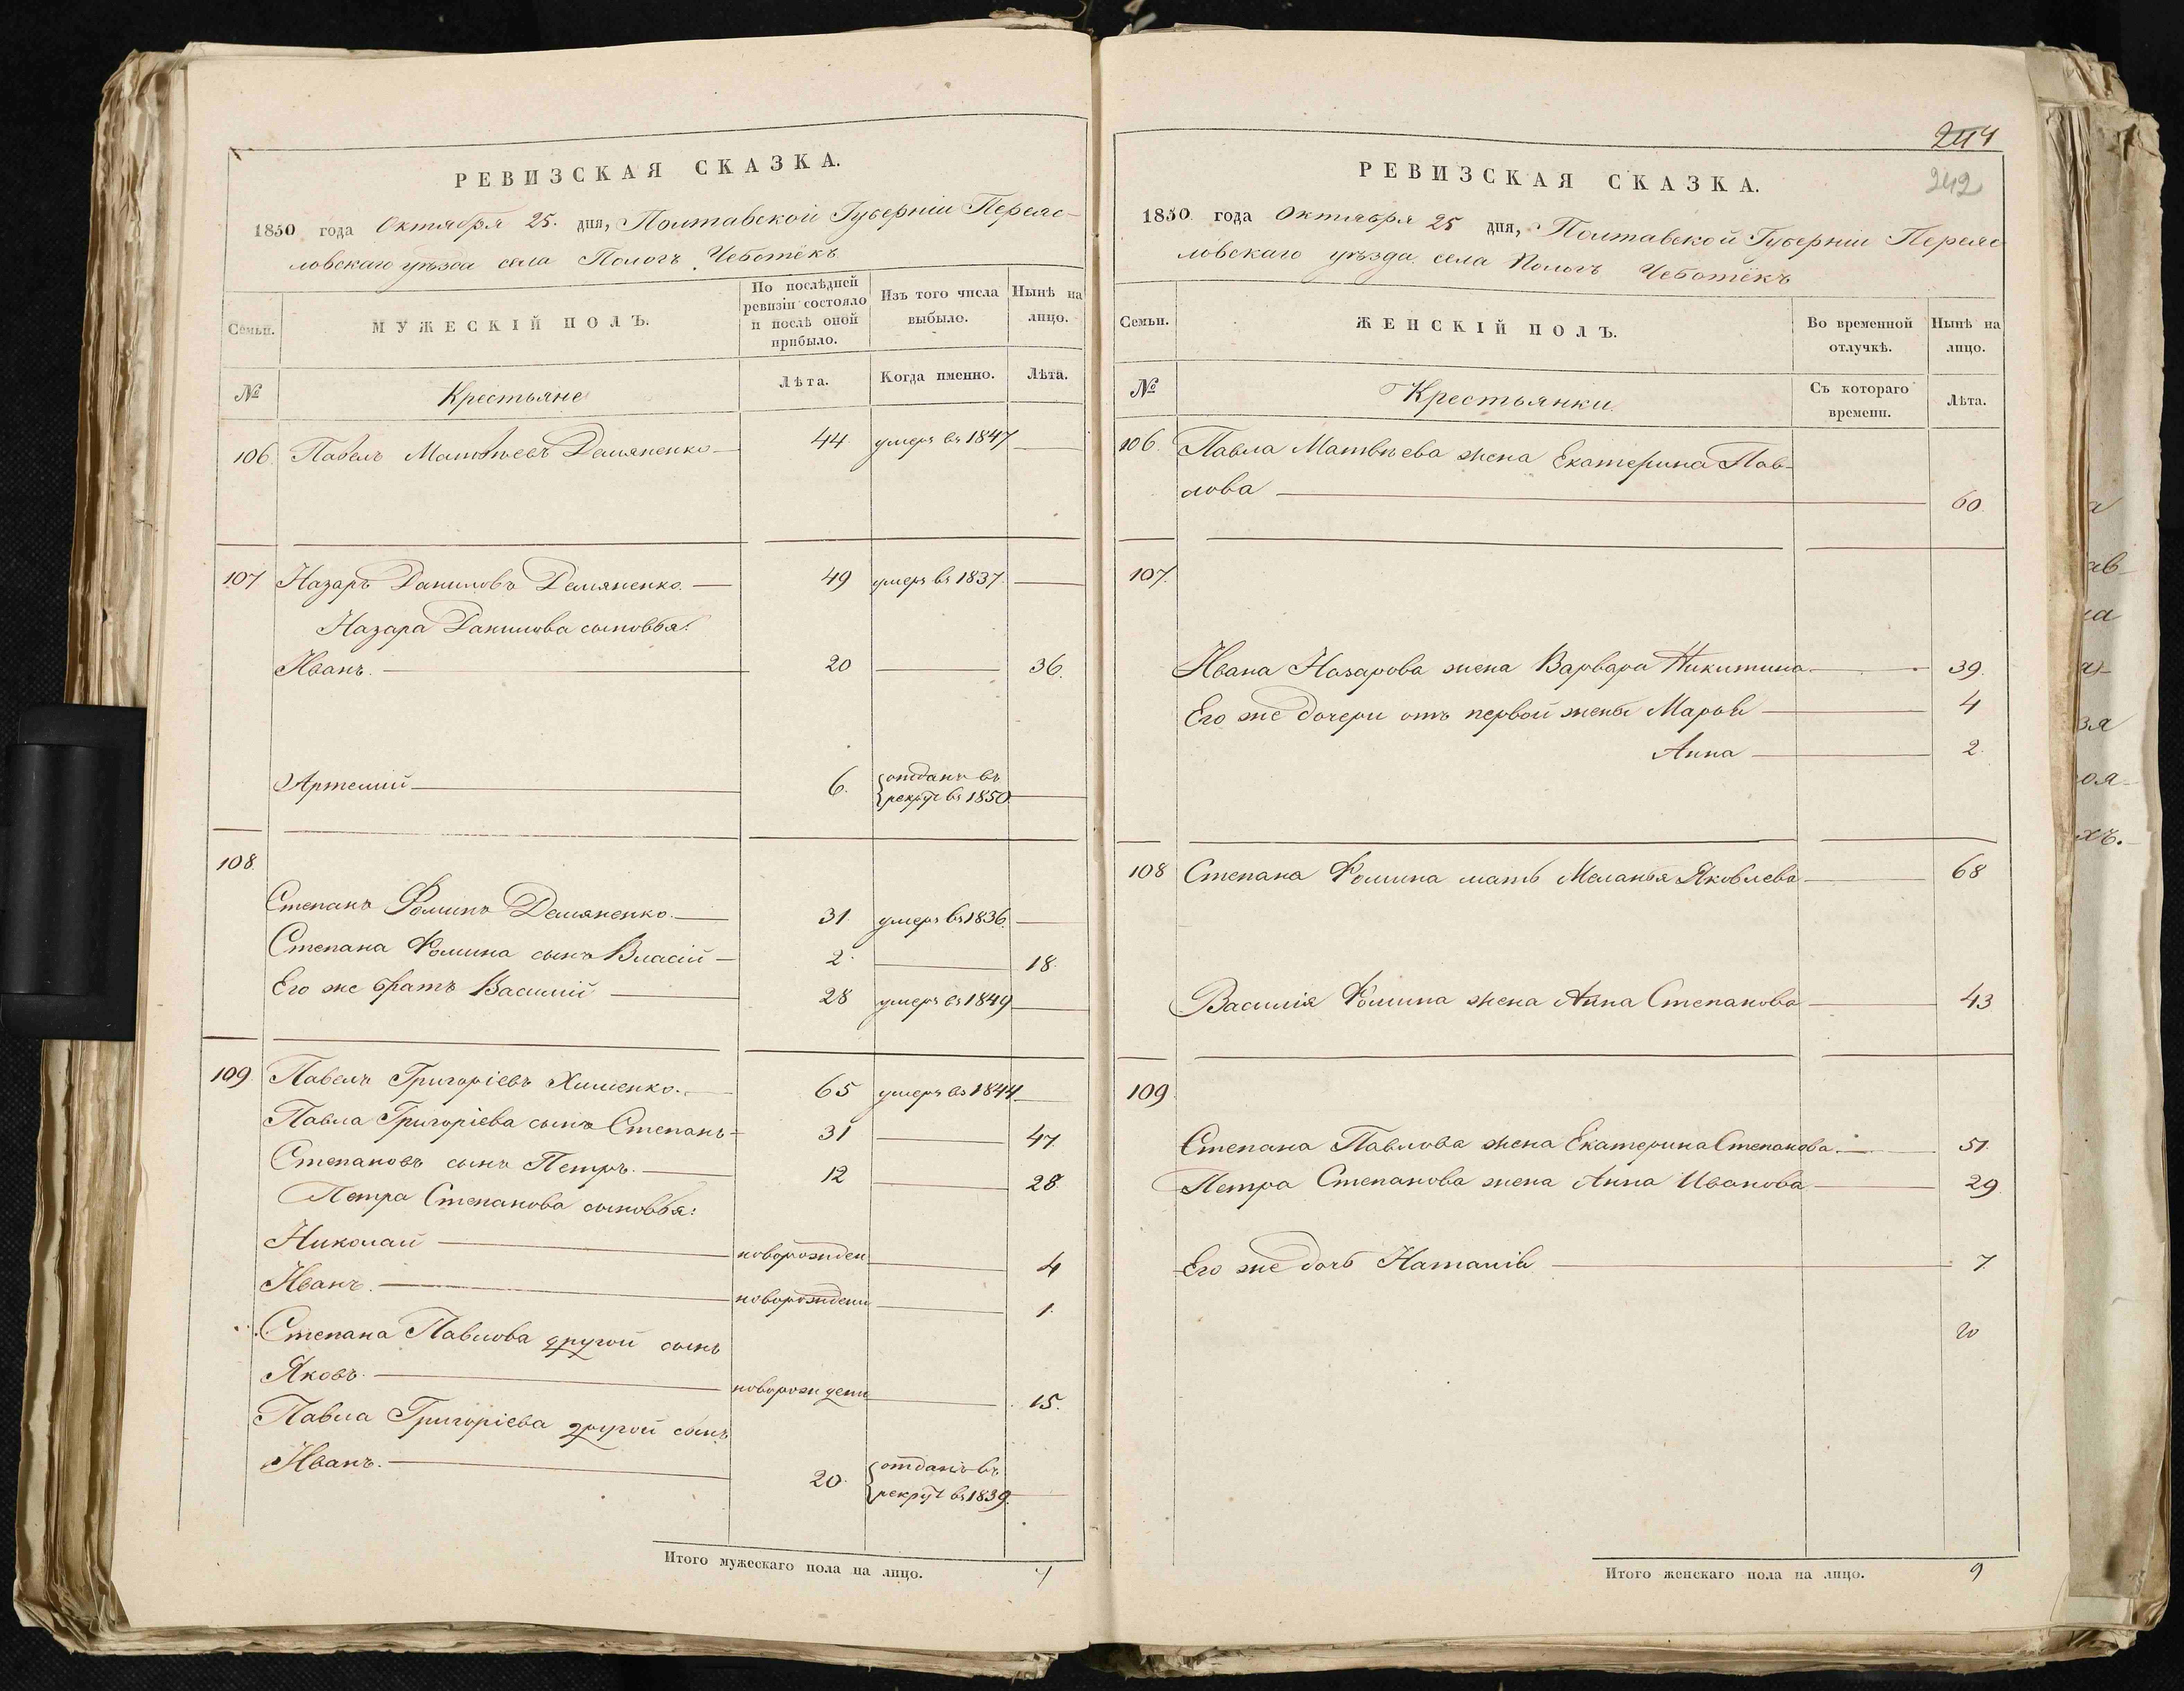 РЕВИЗСКАЯ СКАЗКА.
1850 года Октября 25. дня, Полтавской Губерніи Переяс-
ловскаго уѣзда села Пологъ Чеботёкъ
Семьи. МУЖЕСКІЙ ПОЛЪ. По послѣдней ревизіи состояло и послѣ оной прибыло. Изъ того числа выбыло. Нынѣ на лицо.
№ Крестьяне Лѣта. Когда именно. Лѣта.
106. Павелъ Матвѣевъ Демяненко 44. умеръ въ 1847
107 Назаръ Даниловъ Демяненко. 49 умеръ въ 1837.
Назара Данилова сыновья:
Иванъ. 20 36.
Артемій 6. отданъ въ
рекрут въ 1850
108.
Степанъ Фоминъ Демяненко. 31. умеръ въ 1836.
Степана Фомина сынъ Власій 2. 18.
Его же братъ Василій 28 умеръ въ 1849
109. Павелъ Григоріевъ Хименко. 65 умеръ въ 1844
Павла Григоріева сынъ Степанъ 31 47.
Степановъ сынъ Петръ. 12 28.
Петра Степанова сыновья:
Николай новорожден 4
Иванъ. новорожден 1.
Степана Павлова другой сынъ
Яковъ. новорожден 15.
Павла Григоріева другой сынъ
Иванъ. 20. отданъ въ
рекрут въ 1839.
Итого мужескаго пола на лицо. 7
244
242
РЕВИЗСКАЯ СКАЗКА.
1850. года Октября 25 дня, Полтавской Губерніи Переяс
ловскаго уѣзда села Пологъ Чеботёкъ
Семьи. ЖЕНСКІЙ ПОЛЪ. Во временной отлучкѣ. Нынѣ на лицо.
№ Крестьянки. Съ котораго времени. Лѣта.
106. Павла Матвѣева жена Екатерина Пав-
лова 60.
107.
Ивана Назарова жена Варвара Никитина 39.
Его же дочери отъ первой жены Марья 4
Анна 2.
108 Степана Фомина мать Меланья Яковлева 68
Василія Фомина жена Анна Степанова 43
109
Степана Павлова жена Екатерина Степанова. 51.
Петра Степанова жена Анна Иванова 29
Его же дочь Наталія 7.
Итого женскаго пола на лицо. 9